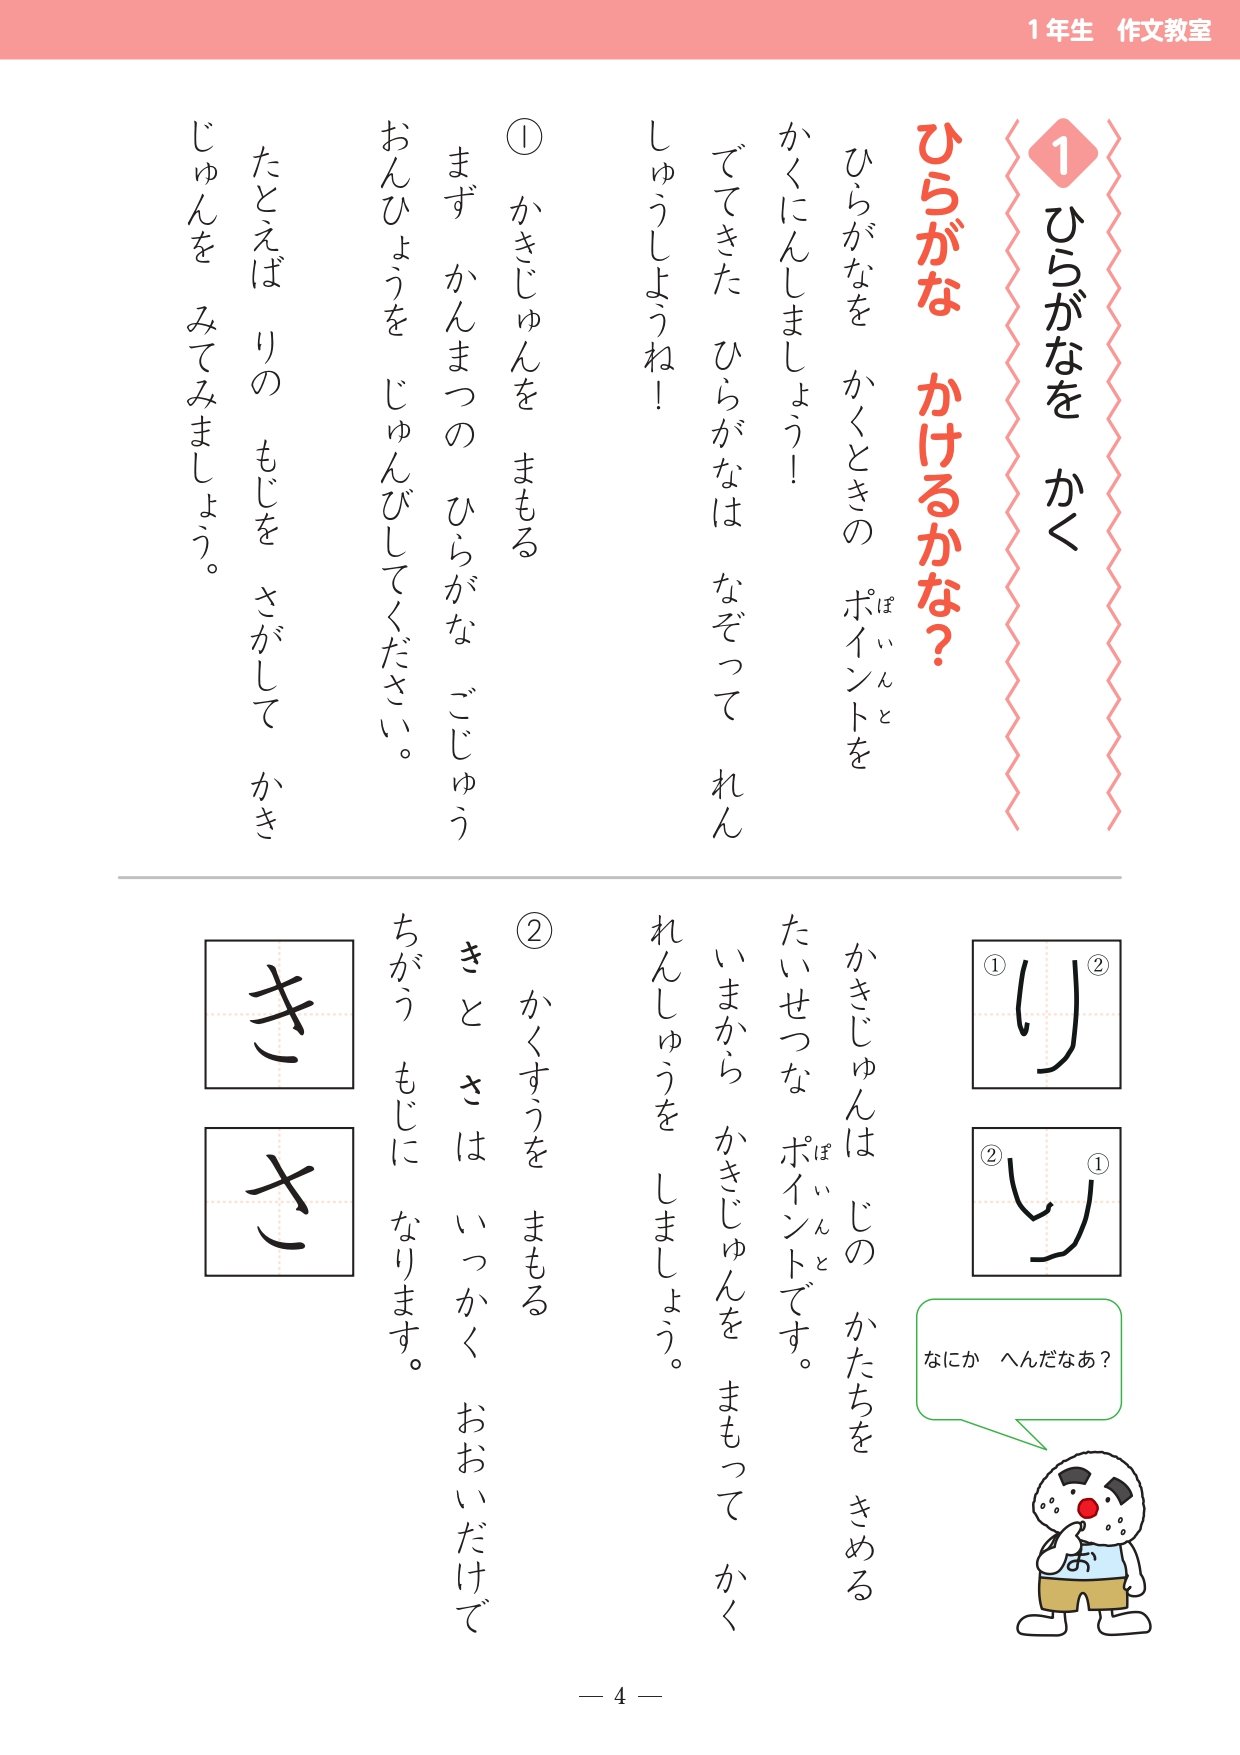 1年生　作文教室
1 ひらがなを　かく
ひらがな　かけるかな？
ひらがなを　かくときの　ポイントを
ぽいんと
かくにんしましょう！
でてきた　ひらがなは　なぞって　れん
しゅうしようね！
①　かきじゅんを　まもる
まず　かんまつの　ひらがな　ごじゅう
おんひょうを　じゅんびしてください。
たとえば　りの　もじを　さがして　かき
じゅんを　みてみましょう。
① り ②
② り ①
なにか　へんだなあ？
お
かきじゅんは　じの　かたちを　きめる
たいせつな　ポイントです。
ぽいんと
いまから　かきじゅんを　まもって　かく
れんしゅうを　しましょう。
②　かくすうを　まもる
きと　さは　いっかく　おおいだけで
ちがう　もじに　なります。
き
さ
― 4 ―